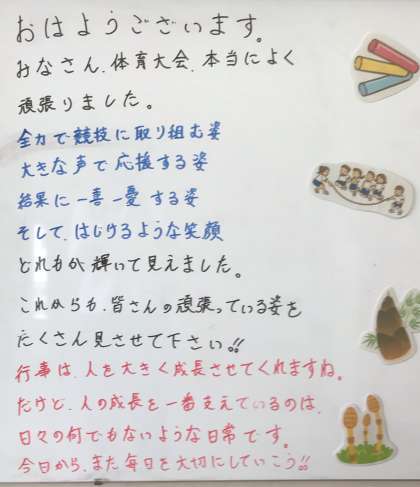 おはようございます。
みなさん、体育大会、本当によく
頑張りました。
全力で競技に取り組む姿
大きな声で応援する姿
結果に一喜一憂する姿
そして、はじけるような笑顔
どれもが輝いて見えました。
これからも、皆さんの頑張っている姿を
たくさん見させて下さい!!
行事は、人を大きく成長させてくれますね。
だけど、人の成長を一番支えているのは、
日々の何でもないような日常です。
今日から、また毎日を大切にしていこう!!